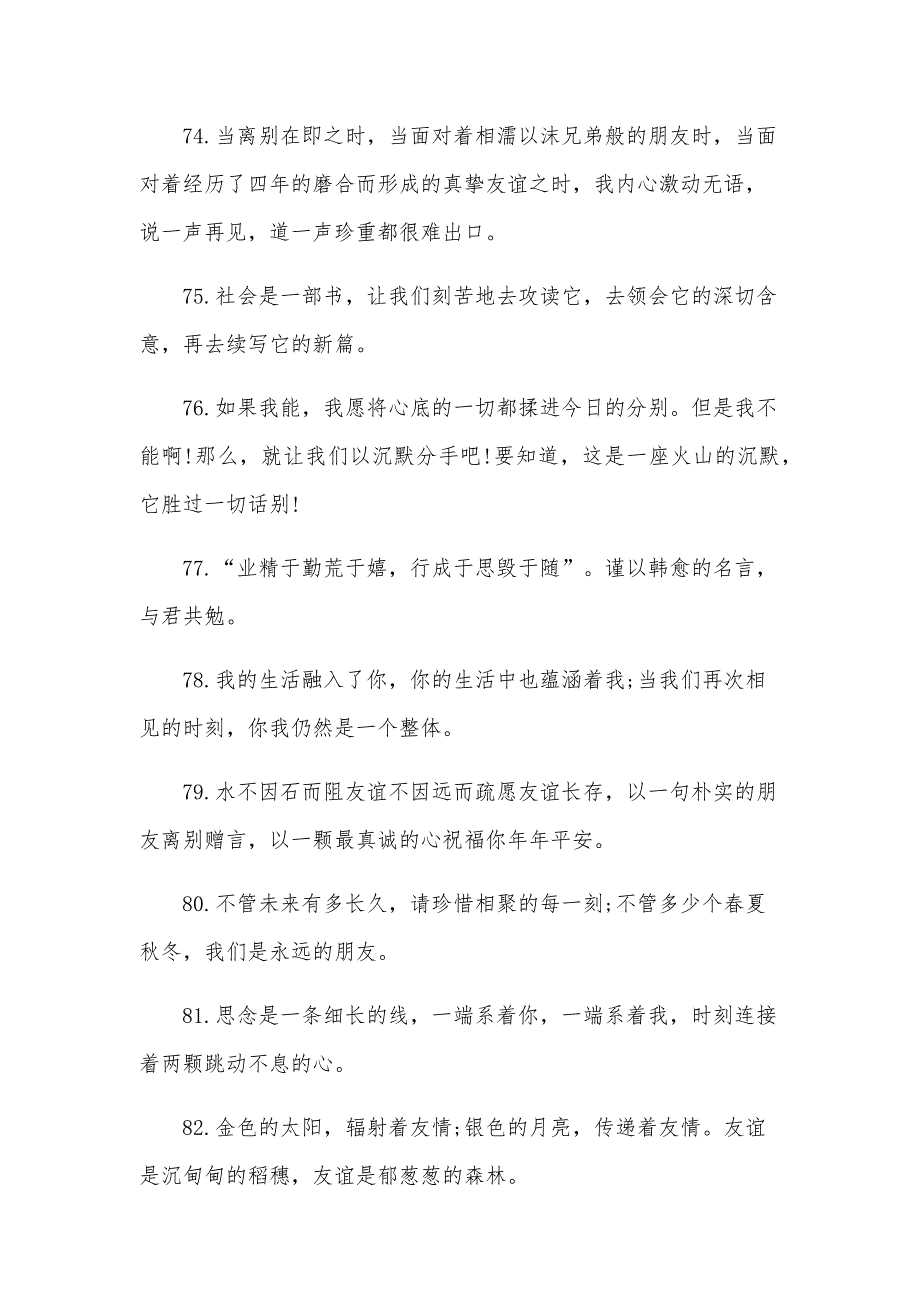 74.当离别在即之时，当面对着相濡以沫兄弟般的朋友时，当面
对着经历了四年的磨合而形成的真挚友谊之时，我内心激动无语，
说一声再见，道一声珍重都很难出口。
75.社会是一部书，让我们刻苦地去攻读它，去领会它的深切含
意，再去续写它的新篇。
76.如果我能，我愿将心底的一切都揉进今日的分别。但是我不
能啊!那么，就让我们以沉默分手吧!要知道，这是一座火山的沉默，
它胜过一切话别!
77.“业精于勤荒于嬉，行成于思毁于随”。谨以韩愈的名言，
与君共勉。
78.我的生活融入了你，你的生活中也蕴涵着我;当我们再次相
见的时刻，你我仍然是一个整体。
79.水不因石而阻友谊不因远而疏愿友谊长存，以一句朴实的朋
友离别赠言，以一颗最真诚的心祝福你年年平安。
80.不管未来有多长久，请珍惜相聚的每一刻;不管多少个春夏
秋冬，我们是永远的朋友。
81.思念是一条细长的线，一端系着你，一端系着我，时刻连接
着两颗跳动不息的心。
82.金色的太阳，辐射着友情;银色的月亮，传递着友情。友谊
是沉甸甸的稻穗，友谊是郁葱葱的森林。